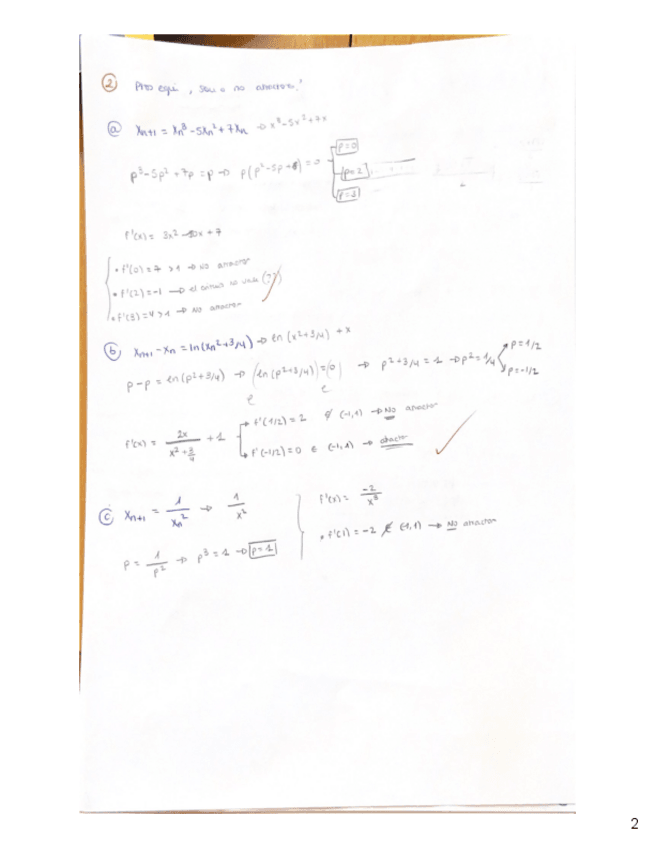 ② Ptos equi, son o no atractor!
ⓐ Xn+1 = Xn³ - 5Xn² + 7Xn → x³ - 5x² + 7x
p³ - 5p² + 7p = p → p(p² - 5p + 6) = 0
p=0
p=2
p=3
f'(x) = 3x² - 10x + 7
• f'(0) = 7 > 1 → No atractor
• f'(2) = -1 → el criterio no vale (??)
• f'(3) = 4 > 1 → No atractor
ⓑ Xn+1 - Xn = ln(Xn² + 3/4) → ln(x² + 3/4) + x
p - p = ln(p² + 3/4) → e^(ln(p² + 3/4)) = e^(0) → p² + 3/4 = 1 → p² = 1/4
p = 1/2
p = -1/2
f'(x) = 2x / (x² + 3/4) + 1
f'(1/2) = 2 ∉ (-1,1) → No atractor
f'(-1/2) = 0 ∈ (-1,1) → atractor
ⓒ Xn+1 = 1/Xn² → 1/x²
p = 1/p² → p³ = 1 → p=1
f'(x) = -2/x³
• f'(1) = -2 ∉ (-1,1) → No atractor
2